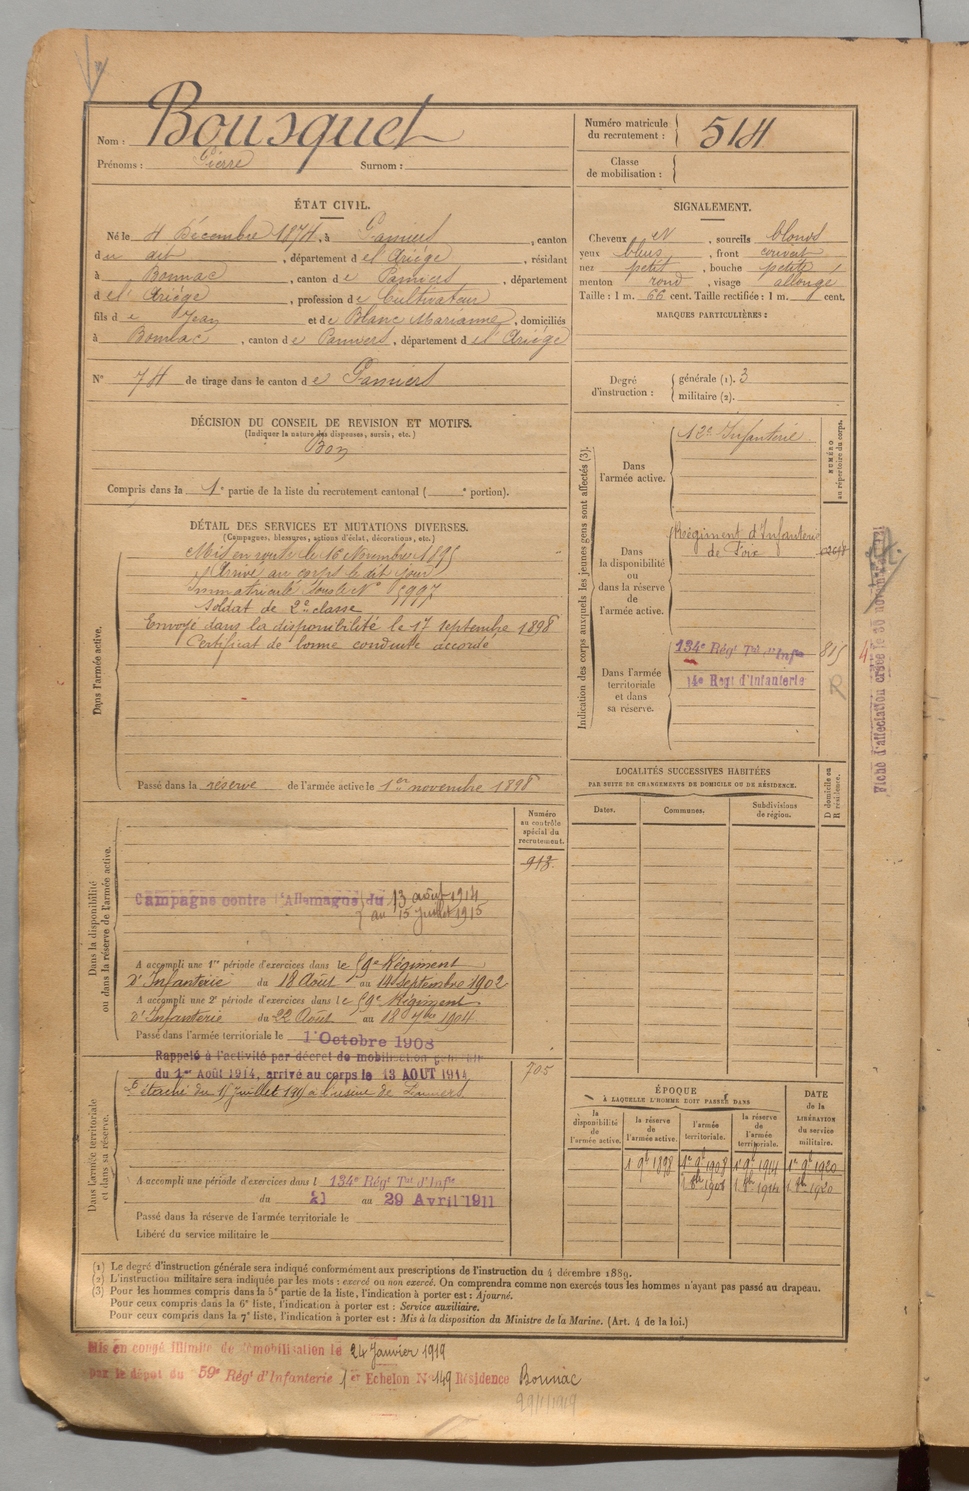 Nom : Bousquet
Prénoms : Pierre Surnom :
Numéro matricule du recrutement : 514
Classe de mobilisation :
ÉTAT CIVIL.
Né le 4 Décembre 1874, à Pamiers, canton
du dit, département de l'Ariège, résidant
à Bonnac, canton de Pamiers, département
de l'Ariège, profession de Cultivateur
fils de Jean et de Blanc Marianne, domiciliés
à Bonnac, canton de Pamiers, département de l'Ariège
N° 74 de tirage dans le canton de Pamiers
SIGNALEMENT.
Cheveux et, sourcils blonds
yeux bleus, front couvert
nez petit, bouche petite
menton rond, visage allongé
Taille : 1 m. 66 cent. Taille rectifiée : 1 m. cent.
MARQUES PARTICULIÈRES :
Degré d'instruction : générale (1). 3
militaire (2).
DÉCISION DU CONSEIL DE REVISION ET MOTIFS.
(Indiquer la nature des dispenses, sursis, etc.)
Bon
Compris dans la 1e partie de la liste du recrutement cantonal ( e portion).
DÉTAIL DES SERVICES ET MUTATIONS DIVERSES.
(Campagnes, blessures, actions d'éclat, décorations, etc.)
Dans l'armée active.
Mis en route le 16 Novembre 1895
Arrivé au corps le dit jour
Immatriculé sous le N° 5997
Soldat de 2e classe
Envoyé dans la disponibilité le 17 septembre 1898
Certificat de bonne conduite accordé
Passé dans la réserve de l'armée active le 1er novembre 1898
Indication des corps auxquels les jeunes gens sont affectés (3).
NUMÉRO au répertoire du corps.
Dans l'armée active.
Infanterie
Dans la disponibilité ou dans la réserve de l'armée active.
Régiment d'Infanterie
de Foix
Dans l'armée territoriale et dans sa réserve.
134e Régt Tal d'Infie 815
14e Regt d'Infanterie R
Fiche d'affectation créée le 30 novembre
LOCALITÉS SUCCESSIVES HABITÉES
PAR SUITE DE CHANGEMENTS DE DOMICILE OU DE RÉSIDENCE.
Dates. Communes. Subdivisions de région. D domicile ou R résidence.
Dans la disponibilité ou dans la réserve de l'armée active.
Numéro au contrôle spécial du recrutement.
918
Campagne contre l'Allemagne du 13 août 1914
au 15 juillet 1915
A accompli une 1re période d'exercices dans le 59e Régiment
d'Infanterie du 18 Août au 14 Septembre 1902
A accompli une 2e période d'exercices dans le 59e Régiment
d'Infanterie du 22 Août au 18 7bre 1904
Passé dans l'armée territoriale le 1 Octobre 1908
Dans l'armée territoriale et dans sa réserve.
Rappelé à l'activité par décret de mobilisation générale
du 1er Août 1914, arrivé au corps le 13 AOUT 1914 705
Détaché du 15 juillet 1915 à l'usine de Pamiers
A accompli une période d'exercices dans l 134e Régt Tal d'Infie
du 21 au 29 Avril 1911
Passé dans la réserve de l'armée territoriale le
Libéré du service militaire le
ÉPOQUE
À LAQUELLE L'HOMME DOIT PASSER DANS
la disponibilité de l'armée active. la réserve de l'armée active. l'armée territoriale. la réserve de l'armée territoriale. DATE de la LIBÉRATION du service militaire.
1 9bre 1898 1er 9bre 1908 1er 9bre 1914 1er 9bre 1920
1 8bre 1908 1 8bre 1914 1 8bre 1920
(1) Le degré d'instruction générale sera indiqué conformément aux prescriptions de l'instruction du 4 décembre 1889.
(2) L'instruction militaire sera indiquée par les mots : exercé ou non exercé. On comprendra comme non exercés tous les hommes n'ayant pas passé au drapeau.
(3) Pour les hommes compris dans la 5e partie de la liste, l'indication à porter est : Ajourné.
Pour ceux compris dans la 6e liste, l'indication à porter est : Service auxiliaire.
Pour ceux compris dans la 7e liste, l'indication à porter est : Mis à la disposition du Ministre de la Marine. (Art. 4 de la loi.)
Mis en congé illimité de démobilisation le 24 Janvier 1919
par le dépôt du 59e Régt d'Infanterie 1er Echelon N° 149 Résidence Bonnac
29/1/1919